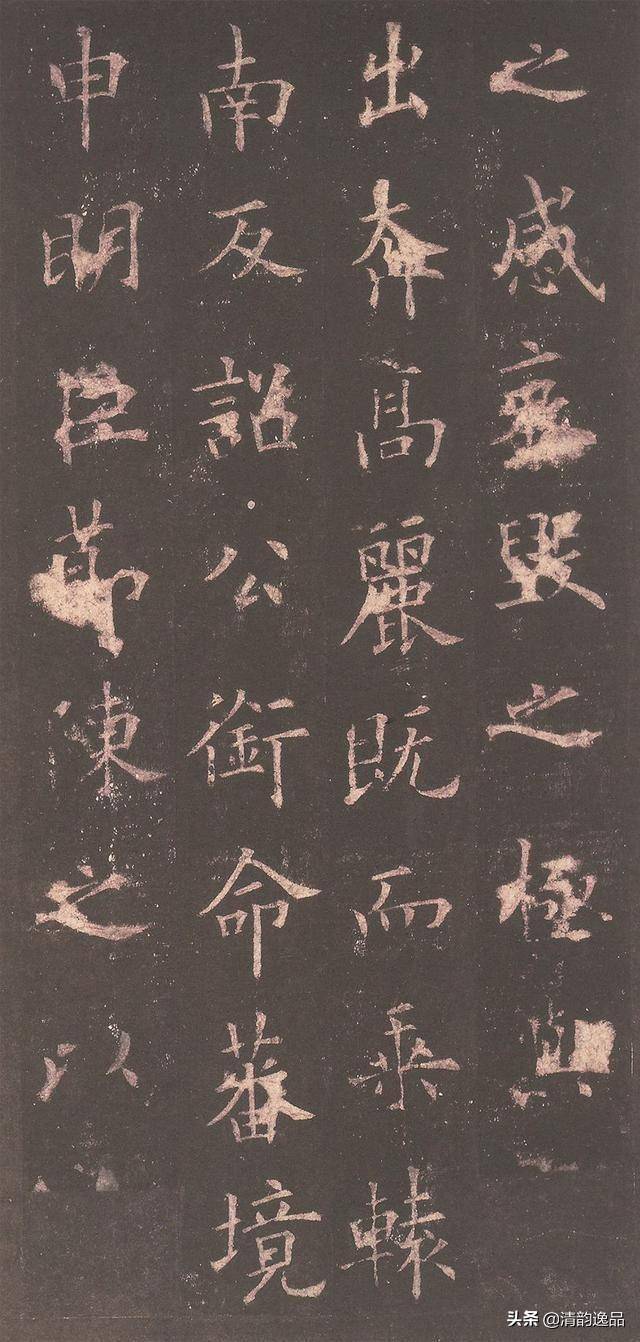 之感毀之極與
出奔高麗既而乘轅
南反詔公銜命蕃境
申明臣節陳之以
头条@清韵逸品